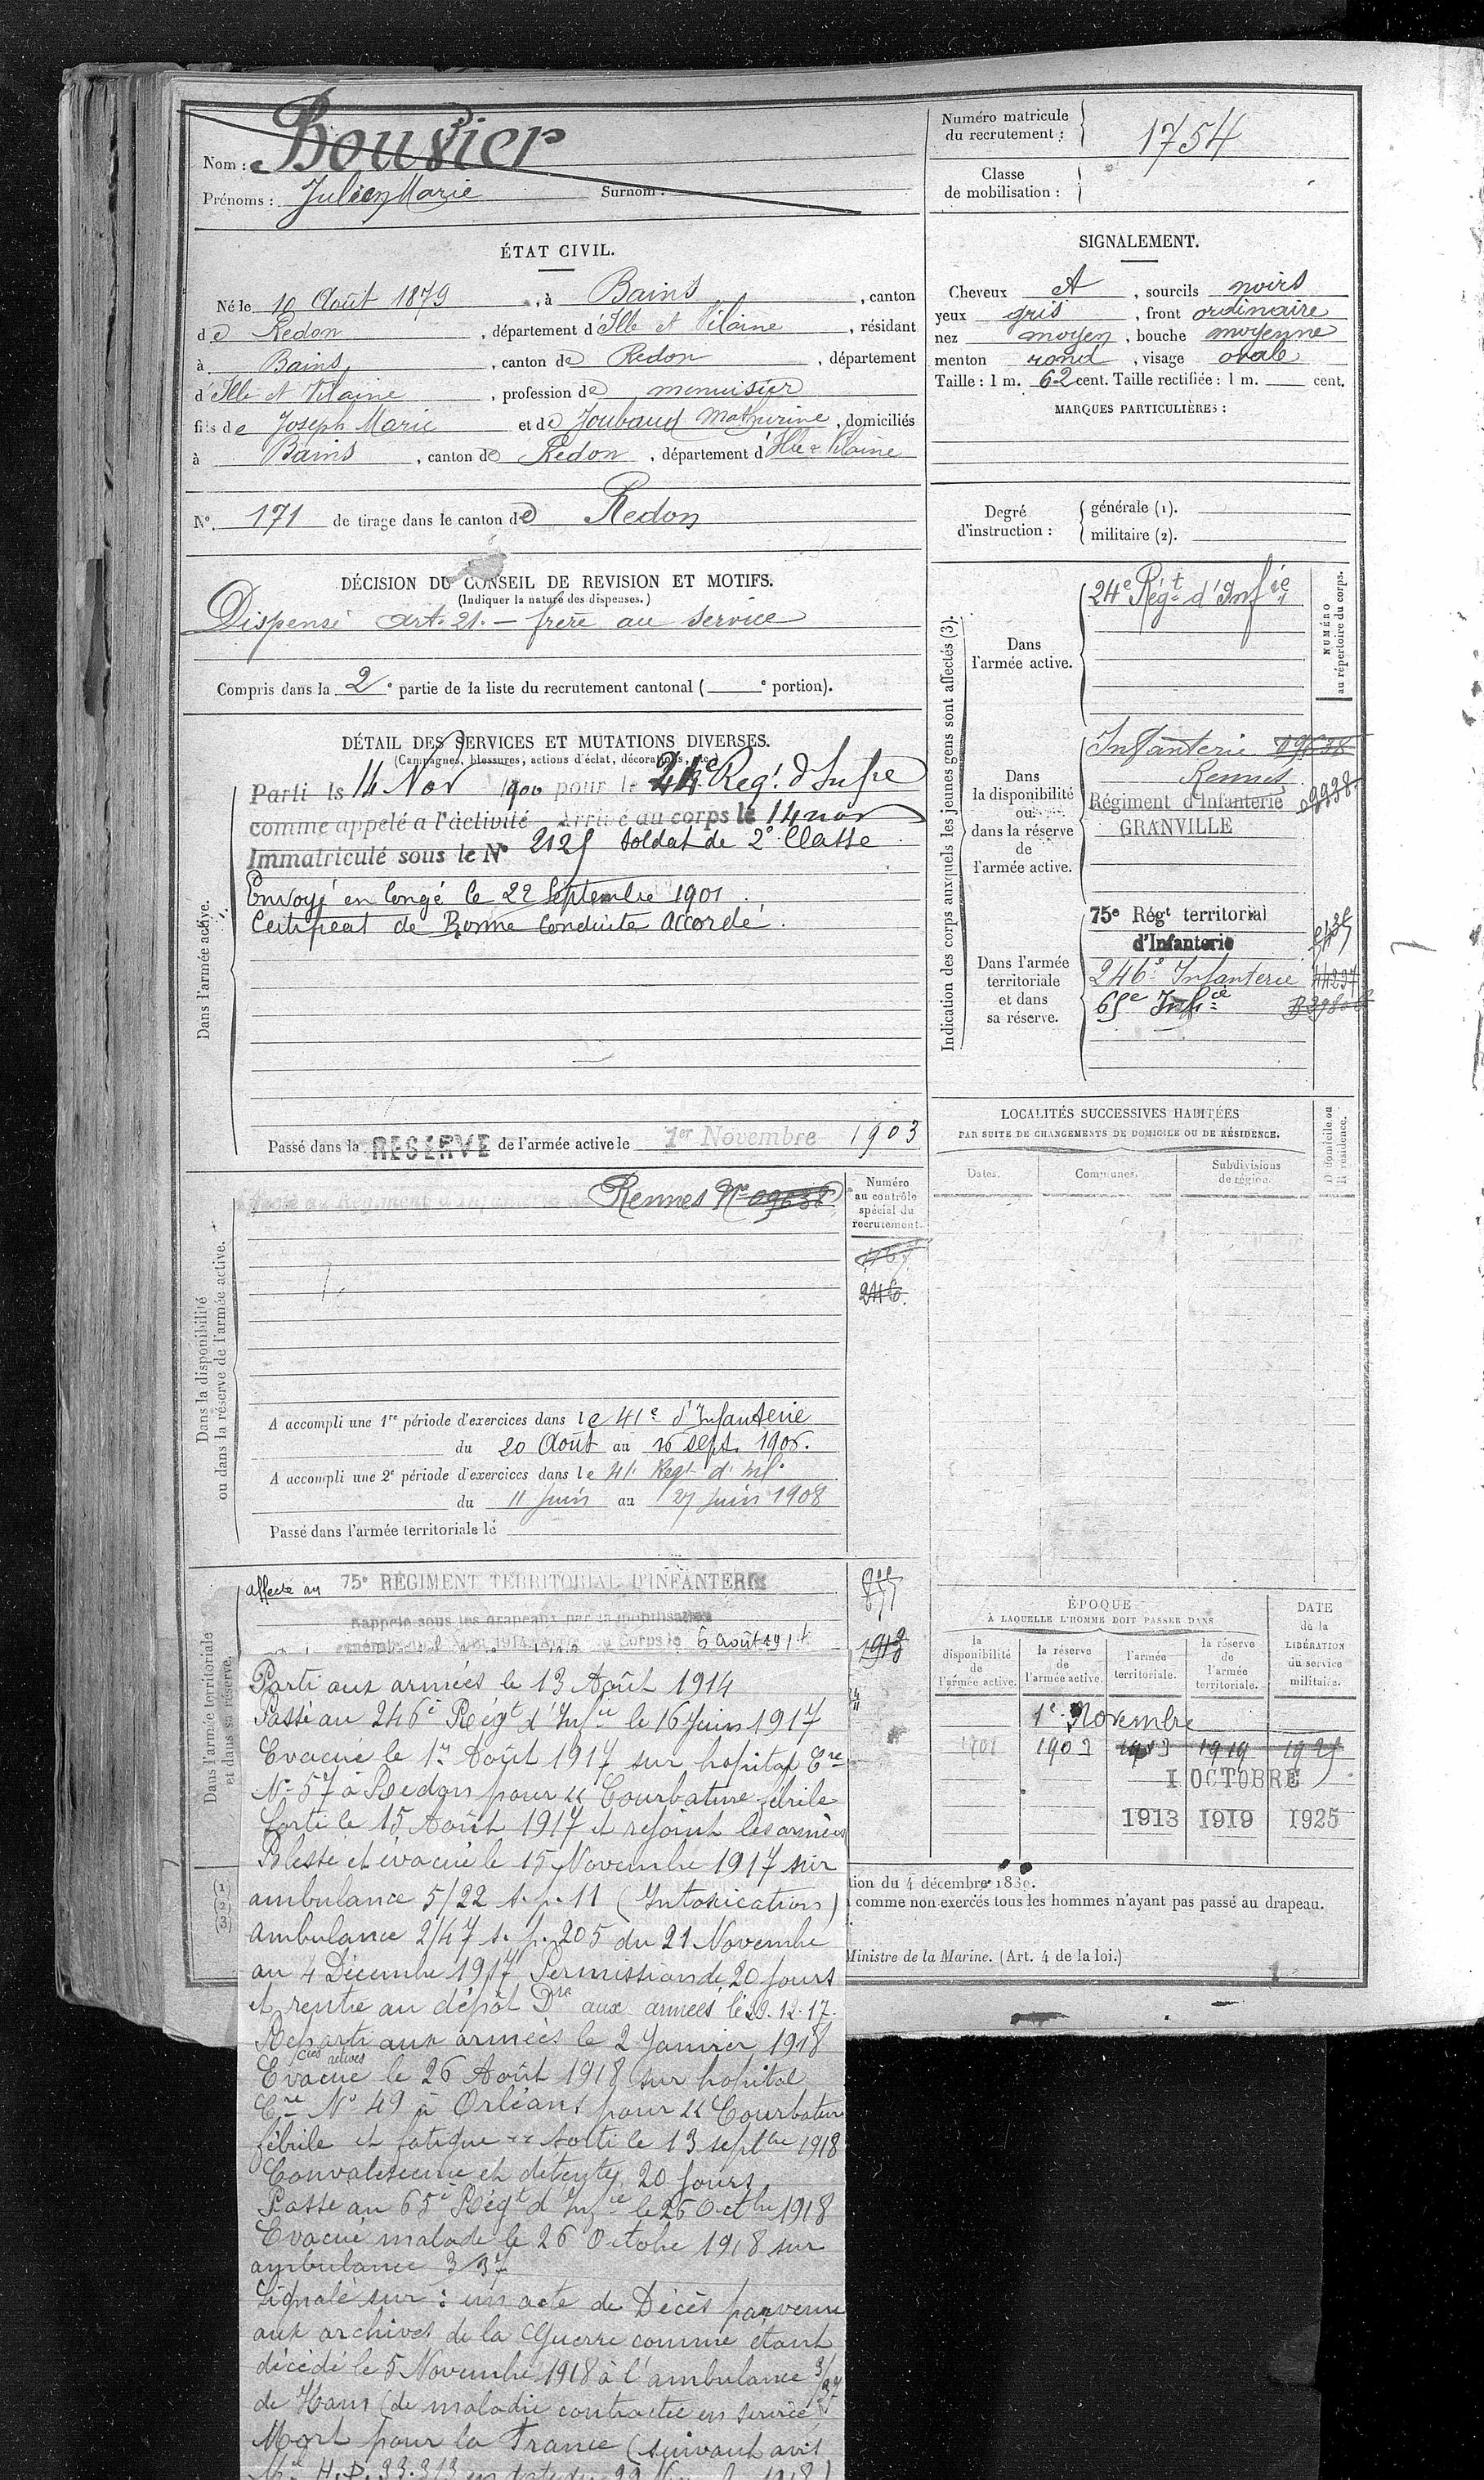 Nom : Bouvier
Prénoms : Julien Marie Surnom :
Numéro matricule du recrutement : 1754
Classe de mobilisation :
ÉTAT CIVIL.
Né le 10 Août 1879, à Bains, canton
de Redon, département d'Ille et Vilaine, résidant
à Bains, canton de Redon, département
d'Ille et Vilaine, profession de menuisier
fils de Joseph Marie et de Joubaud Mathurine, domiciliés
à Bains, canton de Redon, département d'Ille & Vilaine
No. 171 de tirage dans le canton de Redon
SIGNALEMENT.
Cheveux , sourcils noirs
yeux gris, front ordinaire
nez moyen, bouche moyenne
menton rond, visage ovale
Taille : 1 m. 62 cent. Taille rectifiée : 1 m. cent.
MARQUES PARTICULIÈRES :
Degré d'instruction :
générale (1).
militaire (2).
DÉCISION DU CONSEIL DE REVISION ET MOTIFS.
(Indiquer la nature des dispenses.)
Dispensé art. 21. – frère au service
Compris dans la 2e partie de la liste du recrutement cantonal ( e portion).
DÉTAIL DES SERVICES ET MUTATIONS DIVERSES.
(Campagnes, blessures, actions d'éclat, décorations, etc.)
Dans l'armée active.
Parti le 14 Nov 1900 pour le 24e Regt d'Infie
comme appelé a l'activité Arrivé au corps le 14 nov
Immatriculé sous le No 2125 soldat de 2e Classe
Envoyé en congé le 22 Septembre 1901.
Certificat de Bonne Conduite Accordé.
Passé dans la RESERVE de l'armée active le 1er Novembre 1903
Indication des corps auxquels les jeunes gens sont affectés (3).
NUMÉRO au répertoire du corps.
Dans l'armée active.
24e Régt d'Infie
Dans la disponibilité ou dans la réserve de l'armée active.
Infanterie
Rennes
Régiment d'Infanterie
GRANVILLE
Dans l'armée territoriale et dans sa réserve.
75e Régt territorial
d'Infanterie
246e Infanterie
65e Infie
LOCALITÉS SUCCESSIVES HABITÉES
PAR SUITE DE CHANGEMENTS DE DOMICILE OU DE RÉSIDENCE.
Dates. Communes. Subdivisions de région.
Dans la disponibilité ou dans la réserve de l'armée active.
Rennes No 09638
Numéro au contrôle spécial du recrutement.
246.
A accompli une 1re période d'exercices dans le 41e d'Infanterie
du 20 Août au 16 sept. 1906.
A accompli une 2e période d'exercices dans le 41e Regt d'Inf.
du 11 Juin au 27 Juin 1908
Passé dans l'armée territoriale le
Dans l'armée territoriale et dans sa réserve.
affecté au 75e RÉGIMENT TERRITORIAL D'INFANTERIE
Rappelé sous les drapeaux par la mobilisation
Corps le 6 août 1914
Parti aux armées le 13 Août 1914
Passé au 246e Régt d'Infie le 16 Juin 1917
Evacué le 1er Août 1917 sur hopital Cre
No 57 à Redon pour " Courbature fébrile
Sorti le 15 Août 1917 et rejoint les armées
Blessé et évacué le 15 Novembre 1917 sur
ambulance 5/22 s. p. 11 (Intoxication)
Ambulance 2/47 s. p. 205 du 21 Novembre
au 4 Décembre 1917 Permission de 20 jours
et rentre au dépôt Dre aux armées le 29.12.17.
Reparti aux armées le 2 Janvier 1918
Evacué le 26 Août 1918 sur hopital
Cre No 49 à Orléans pour " Courbature
fébrile et fatigue " sorti le 13 septbre 1918
Convalescence et détente 20 jours
Passé au 65e Régt d'Infie le 26 Octbre 1918
Evacué malade le 26 Octobre 1918 sur
ambulance 3/37
Signalé sur : un acte de Décès parvenu
aux archives de la Guerre comme étant
décédé le 5 Novembre 1918 à l'ambulance 3/37
de Ham (de maladie contractée en service
Mort pour la France (suivant avis
ÉPOQUE
À LAQUELLE L'HOMME DOIT PASSER DANS
la disponibilité de l'armée active.
la réserve de l'armée active.
l'armée territoriale.
la réserve de l'armée territoriale.
DATE de la LIBÉRATION du service militaire.
1er Novembre
1901 1903 1913 1919 1925
1 OCTOBRE
1913 1919 1925
(1)
(2)
(3)
tion du 4 décembre 1889.
comme non exercés tous les hommes n'ayant pas passé au drapeau.
Ministre de la Marine. (Art. 4 de la loi.)